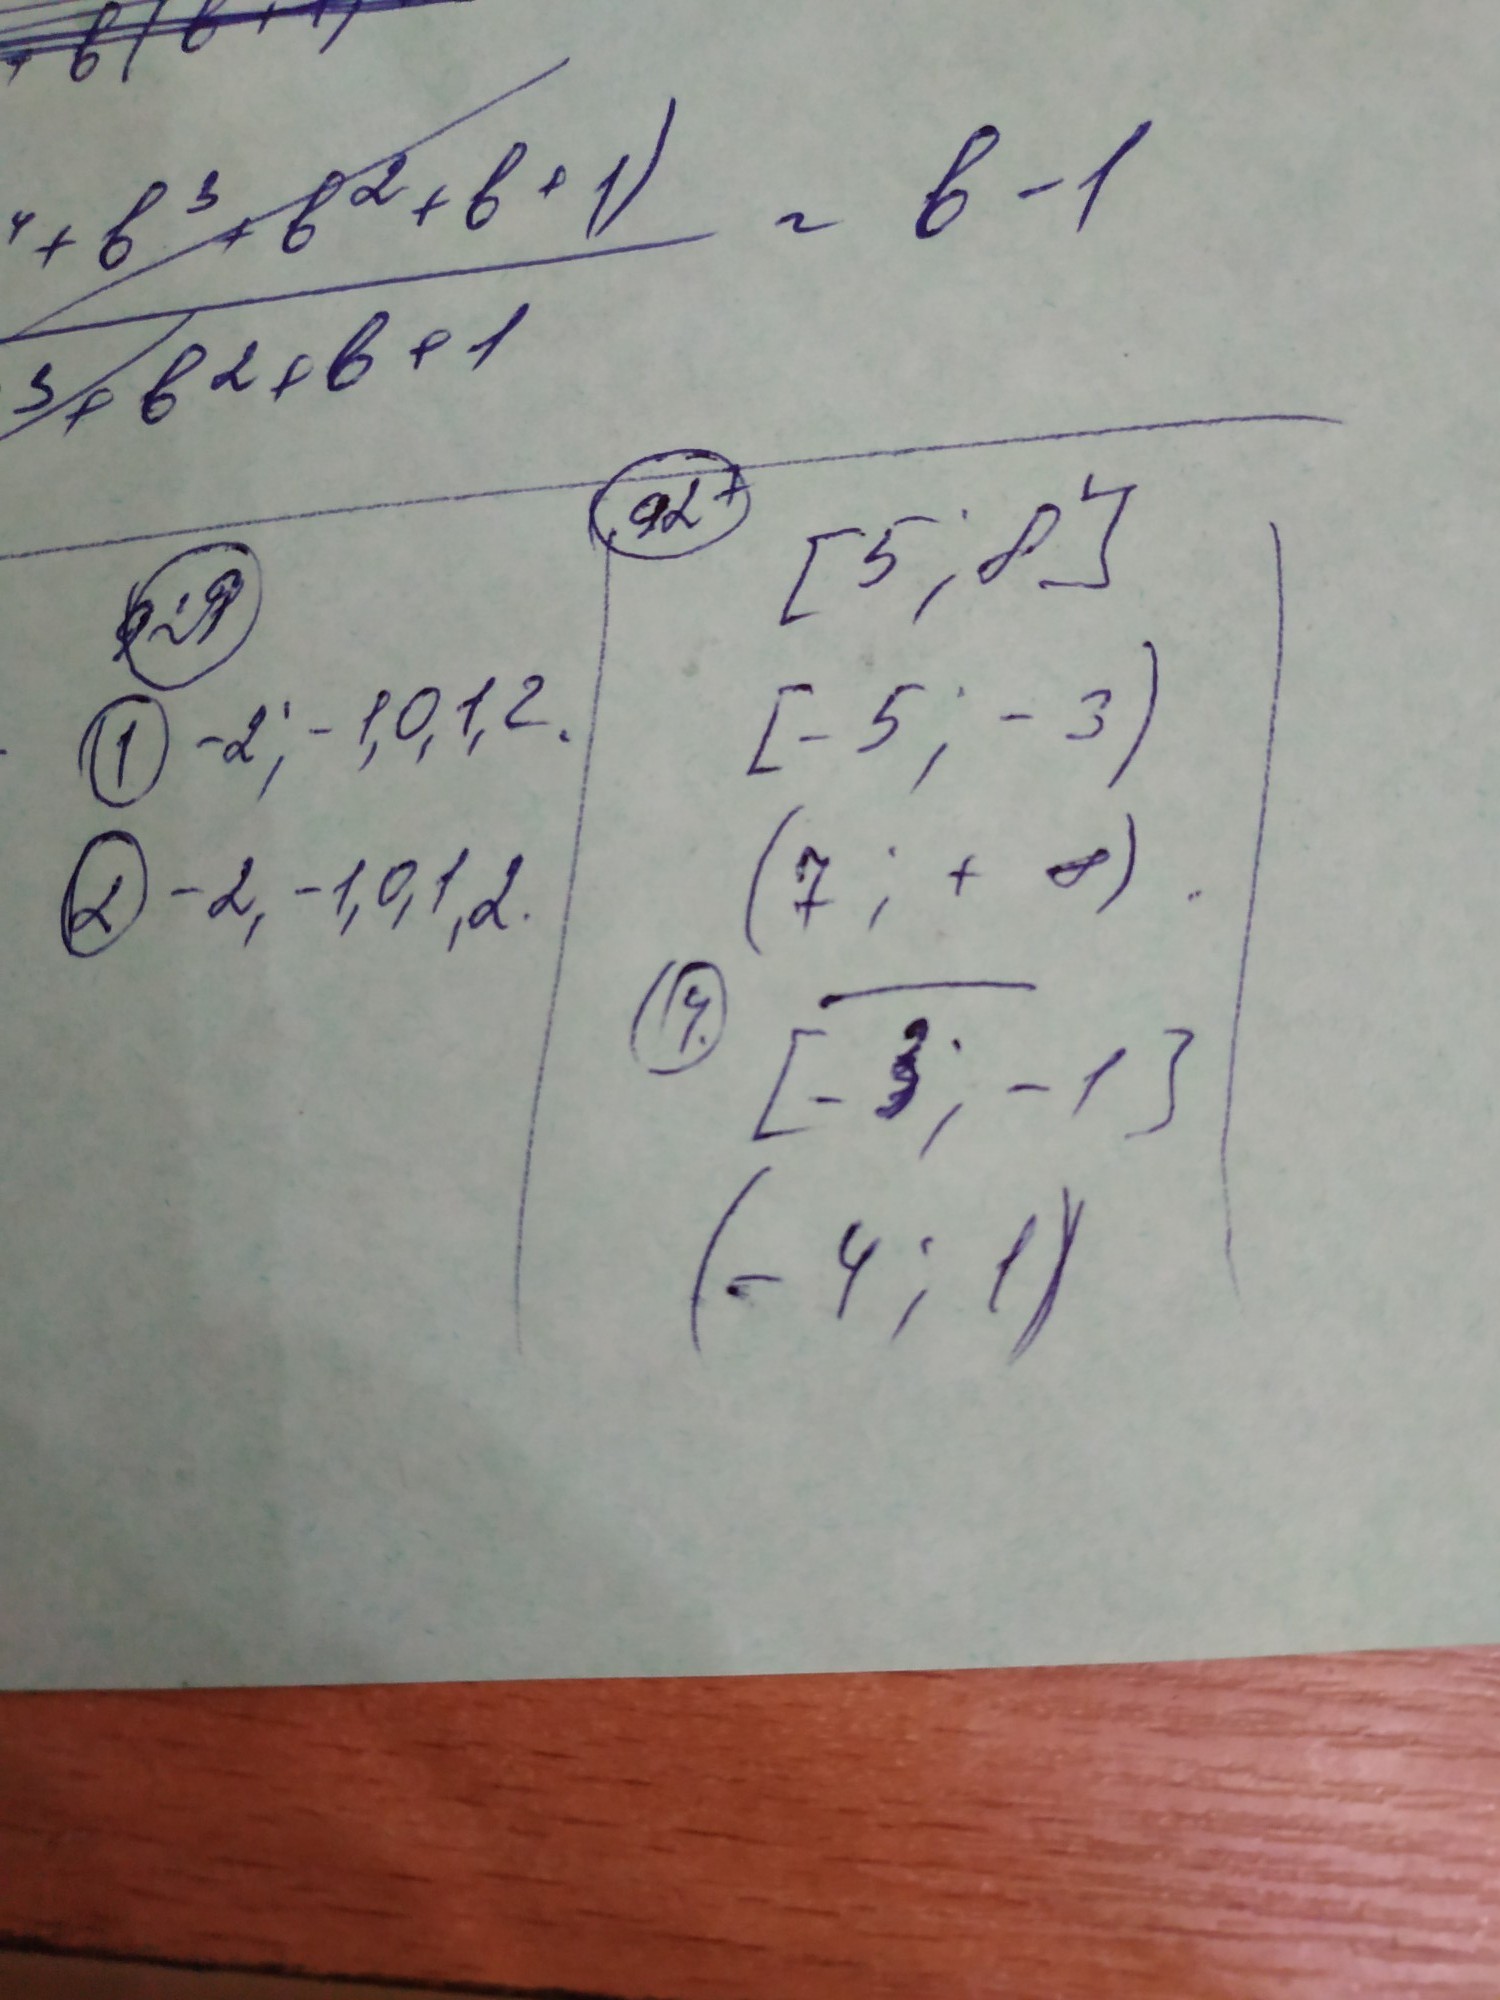 + b(b+1)
4 + b³ + b² + b + 1) = b - 1
3 + b² + b + 1
929
① -2; -1, 0, 1, 2.
② -2, -1, 0, 1, 2.
927
[5; 8]
[-5; -3)
(7; +∞).
④
[-3; -1]
(-4; 1)